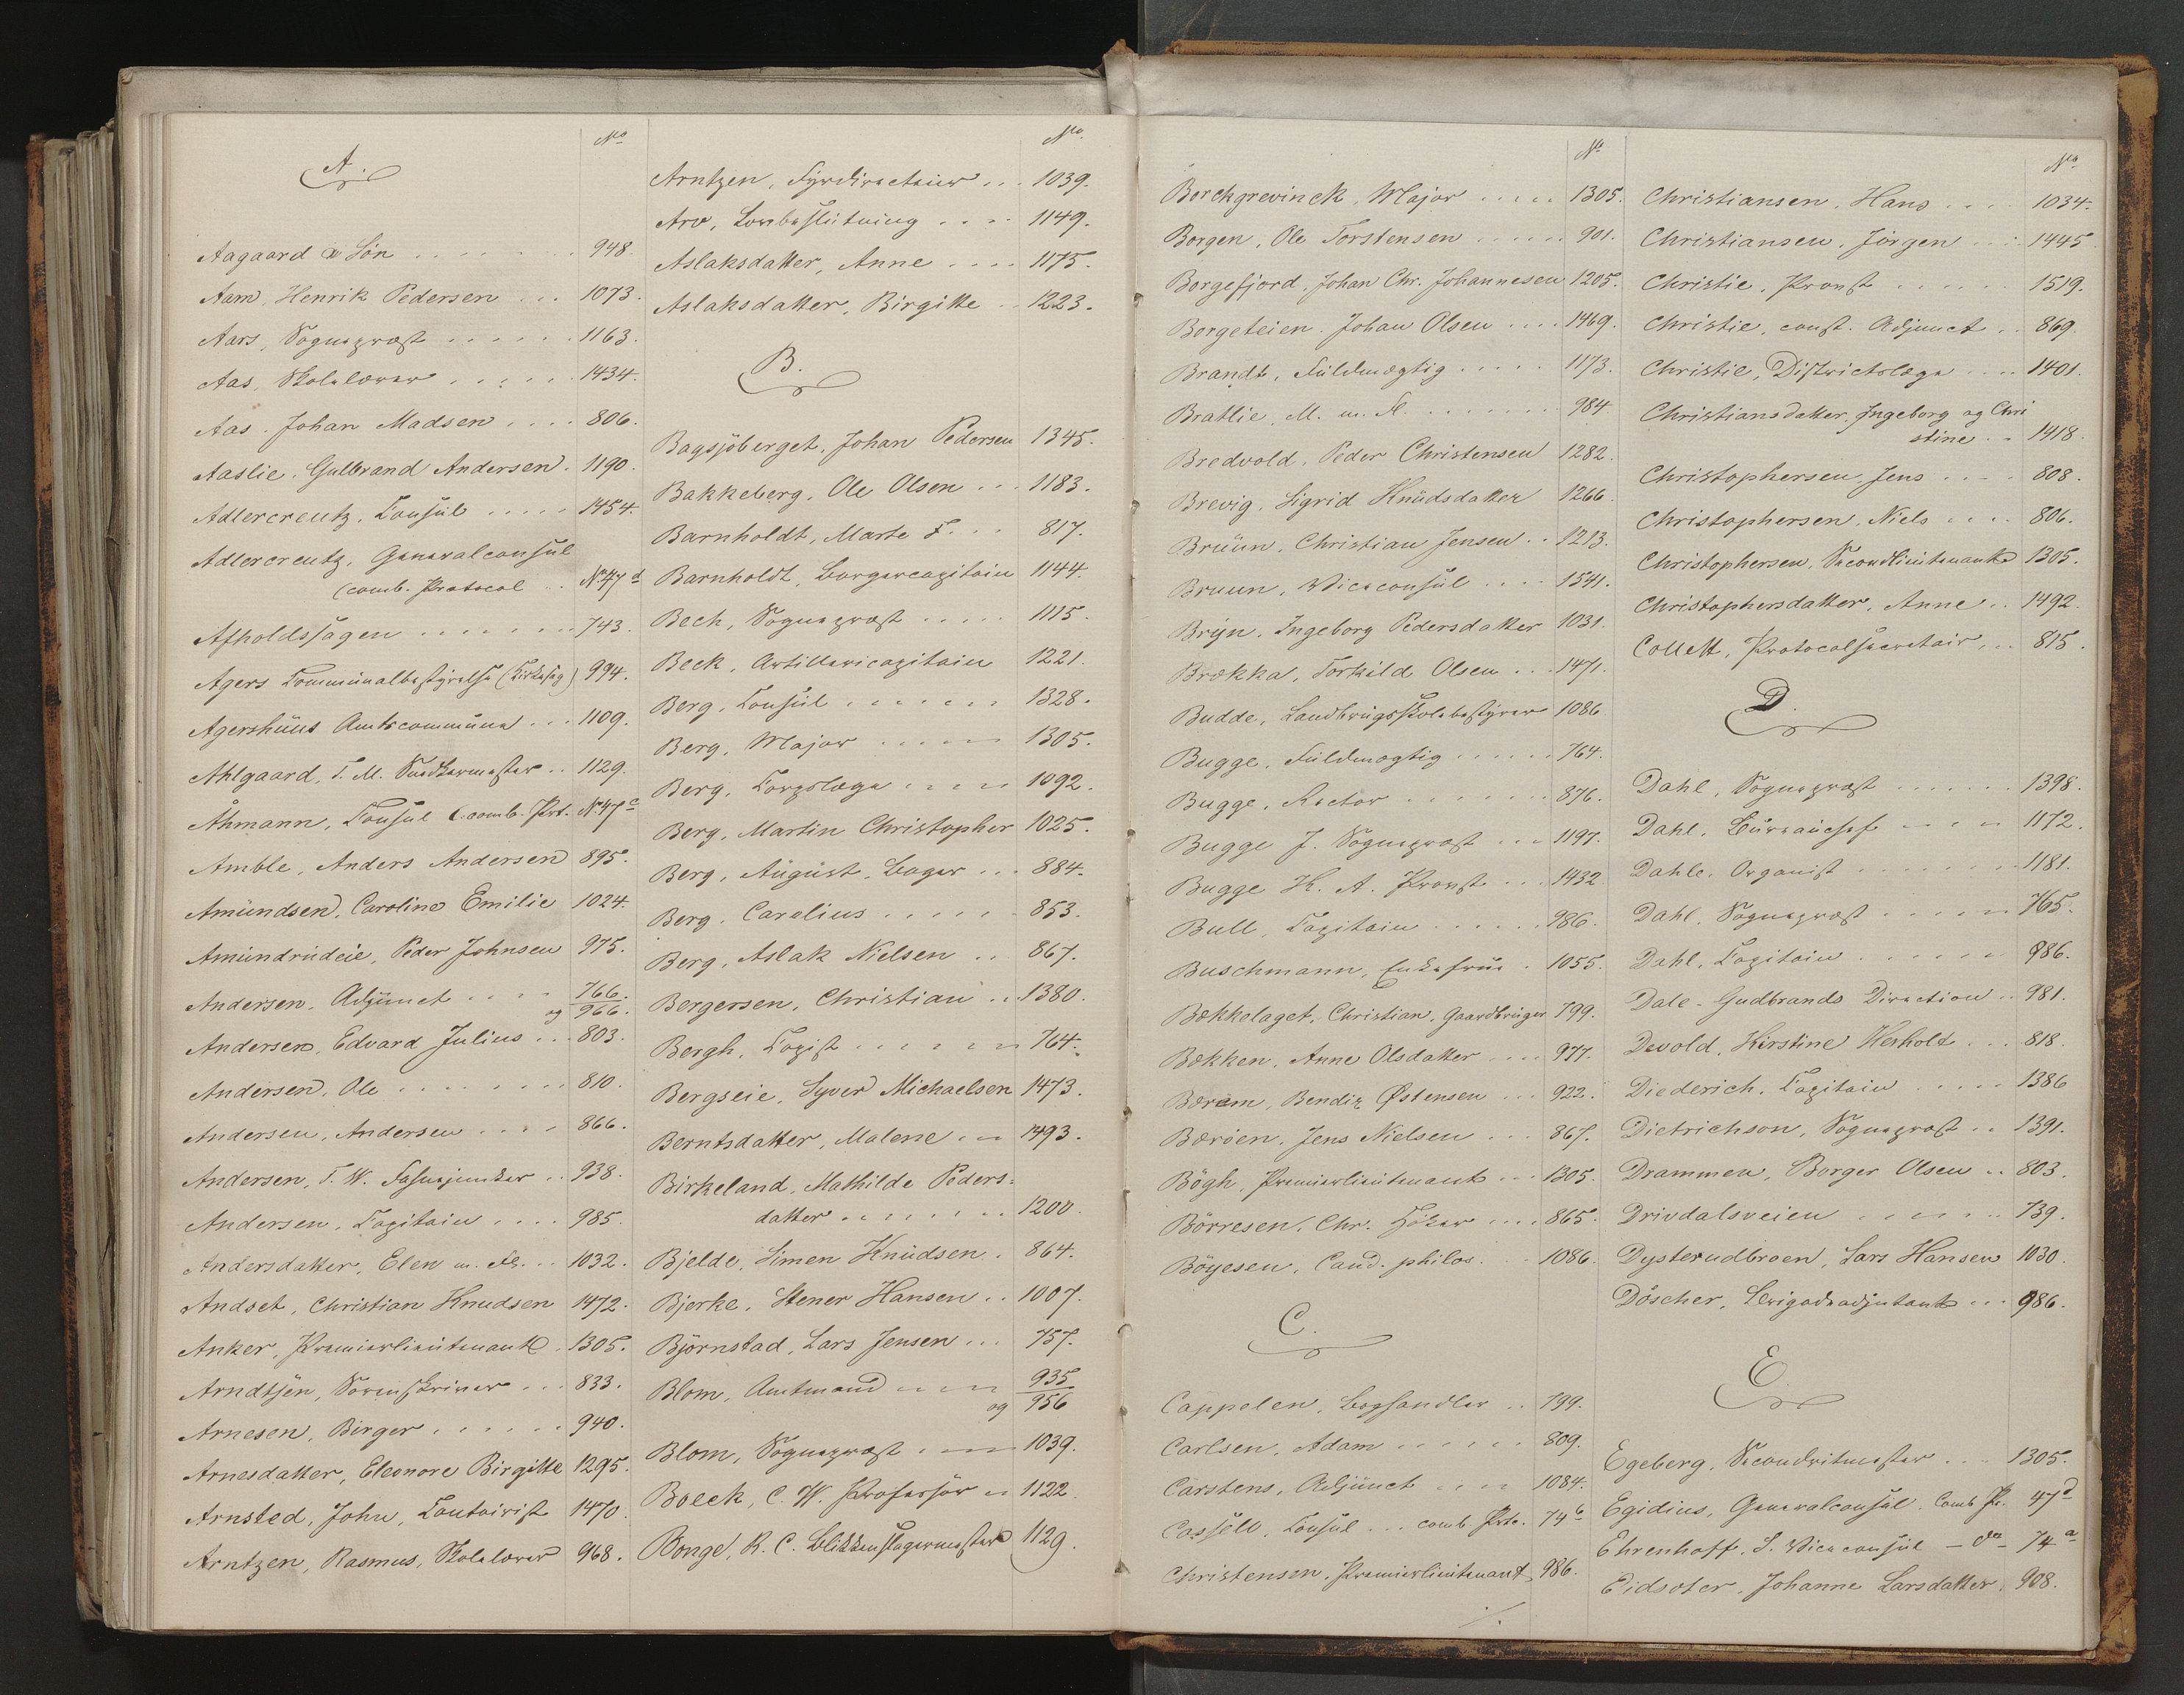 No
A.
Aagaard & Sön ........ 948.
Aam, Henrik Pedersen ... 1073.
Aars, Sognepræst ...... 1163.
Aas, Skolelærer ...... 1434.
Aas, Johan Madsen .... 806.
Aaslie, Gulbrand Andersen. 1190.
Adlercreutz, Consul ..... 1454.
Adlercreutz, Generalconsul
(comb. Protocol .. No 47 d
Afholdssagen ....... 743.
Agers Communalbestyrelse (Kirkesag) 994.
Agershuus Amtscommune ... 1109.
Ahlgaard, T. M. Snedkermester .. 1129.
Åhmann, Consul (comb. Prt. No 47 c
Amble, Anders Andersen 895.
Amundsen, Caroline Emilie 1024.
Amundrudeie, Peder Johnsen 975.
Andersen, Adjunct .... 766.
og 966.
Andersen, Edvard Julius ... 803.
Andersen, Ole ........ 810.
Andersen, Andersen .... 866.
Andersen, T. W. .. 938.
Andersen, Capitain .... 985.
Andersdatter, Elen m. fl. .. 1032.
Andset, Christian Knudsen 1472.
Anker, Premierlieutenant . 1305.
Arndtsen, Sorenskriver ... 833.
Arnesen, Birger ...... 940.
Arnesdatter, Eleonore Birgitte 1295.
Arnsted, John, Contoirist 1470.
Arntzen, Rasmus, Skolelærer 968.
No.
Arntzen, Fyrdirecteur ... 1039.
Arv, Lovbeslutning .... 1149.
Aslaksdatter, Anne .... 1175.
Aslaksdatter, Birgitte .. 1223.
B.
Bagsjöberget, Johan Pedersen 1345.
Bakkeberg, Ole Olsen ... 1183.
Barnholdt, Marte F. .. 817.
Barnholdt, Borgercapitain 1144.
Bech, Sognepræst ..... 1115.
Beck, Artillericapitain 1221.
Berg, Consul ...... 1328.
Berg, Major ..... 1305.
Berg, Corpslæge ..... 1092.
Berg, Martin Christopher 1025.
Berg, August, Bager ... 884.
Berg, Carelius ...... 853.
Berg, Aslak Nielsen .. 867.
Bergersen, Christian .. 1380.
Bergh, Copist ...... 764.
Bergseie, Syver Michaelsen 1473.
Berntsdatter, Malene ... 1493.
Birkeland, Mathilde Peders=
datter ....... 1200.
Bjelde, Simen Knudsen . 864.
Bjerke, Stener Hansen .. 1007.
Björnstad, Lars Jensen ... 757.
Blom, Amtmand .... 935
og 956
Blom, Sognepræst .... 1039.
Boeck, C. W. Professör .. 1122.
Bonge, R. C. Blikkenslagermester 1129.
No
Borchgrevinck, Major ..... 1305.
Borgen, Ole Torstensen ..... 901.
Borgefjord, Johan Chr. Johannesen 1205.
Borgeteien, Johan Olsen .... 1469.
Brandt, Fuldmægtig ..... 1173.
Bratlie, M. m. fl. ....... 984
Bredvold, Peder Christensen 1282.
Brevig, Sigrid Knudsdatter 1266.
Bruun, Christian Jensen .. 1213.
Bruun, Viceconsul .... 1541.
Bryn, Ingeborg Pedersdatter 1031.
Brækka, Torkild Olsen ... 1471.
Budde, Landbrugsskolebestyrer 1086
Bugge, Fuldmægtig ...... 764.
Bugge, Rector ....... 876.
Bugge J. Sognepræst ... 1197.
Bugge K. A. Provst ... 1432
Bull, Capitain ...... 986.
Buschmann, Enkefrue . 1055.
Bækkelaget, Christian, Gaardbruger 799.
Bækken, Anne Olsdatter .... 977.
Bærem, Bendix Østensen ... 922.
Bæröen, Jens Nielsen ... 867.
Bögh, Premierlieutenant ... 1305.
Börresen, Chr. Höker .... 865.
Böyesen, Cand. philos. .. 1086.
C.
Cappelen, Boghandler .. 799.
Carlsen, Adam ...... 809.
Carstens, Adjunct .... 1084.
Cassell, Consul ... comb. Prtc. 74 b
Christensen, Premierlieutenant 986.
./.
No.
Christiansen, Hans .... 1034.
Christiansen, Jörgen .... 1445.
Christie, Provst ...... 1519.
Christie, const. Adjunct .. 869.
Christie, Districtslæge .... 1401.
Christiansdatter, Ingeborg og Chri
stine .. 1418.
Christophersen, Jens .... 808.
Christophersen, Niels .... 806.
Christophersen, Secondlieutenant 1305.
Christophersdatter, Anne .. 1492.
Collett, Protocolsecretair ... 815.
D.
Dahl, Sognepræst ...... 1398.
Dahl, Bureauchef .... 1172.
Dahle, Organist ....... 1181.
Dahl, Sognepræst ..... 765.
Dahl, Capitain ...... 986.
Dale-Gudbrands Direction .. 981.
Devold, Kirstine Herholt ... 818.
Diederich, Capitain ..... 1386
Dietrichson, Sognepræst .. 1391.
Drammen, Borger Olsen .. 803.
Drivdalsveien ...... 739.
Dysterudbroen, Lars Hansen 1030.
Döscher, Brigadeadjutant ... 986.
E.
Egeberg, Secondritmester ... 1305.
Egidius, Generalconsul, Comb. Pr. 47 d
Ehrenhoff, S. Viceconsul - do - 74 a
Eidsæter, Johanne Larsdatter. 908.